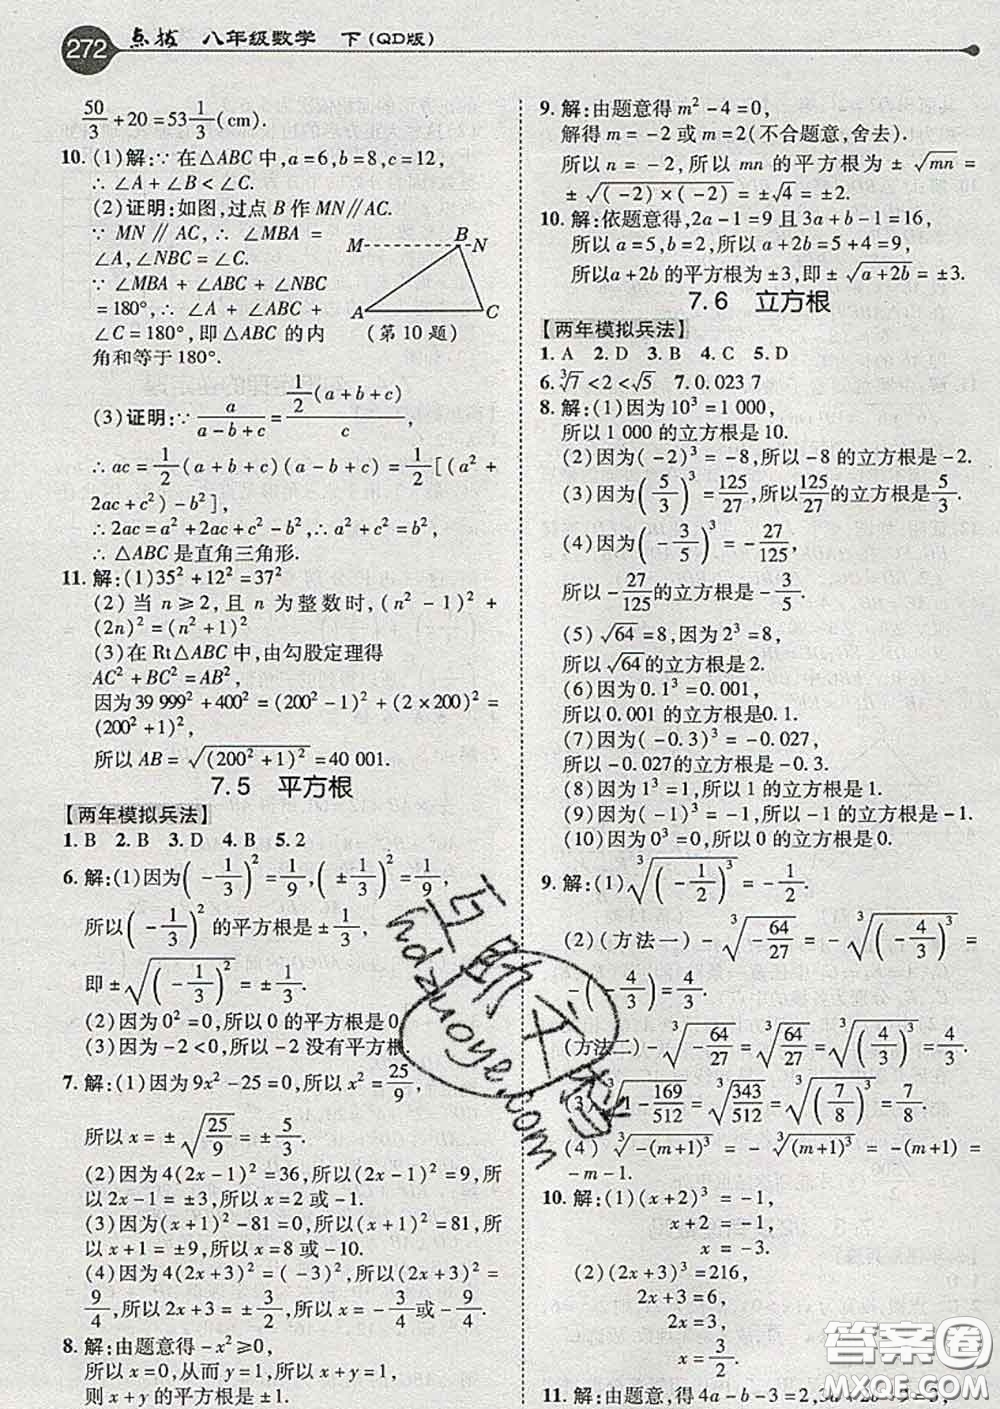 272 点拨 八年级数学 下(QD版)
50/3+20=53 1/3(cm).
10. (1)解:∵在△ABC中,a=6,b=8,c=12,
∴∠A+∠B<∠C.
(2)证明:如图,过点B作MN∥AC.
∵MN∥AC,∴∠MBA=
∠A,∠NBC=∠C.
∵∠MBA+∠ABC+∠NBC
=180°,∴∠A+∠ABC+
∠C=180°,即△ABC的内
角和等于180°.
M B N
A C
(第10题)
(3)证明:∵a/(a-b+c)=(1/2(a+b+c))/c,
∴ac=1/2(a+b+c)(a-b+c)=1/2[(a²+
2ac+c²)-b²],
∴2ac=a²+2ac+c²-b²,∴a²+c²=b²,
∴△ABC是直角三角形.
11. 解:(1)35²+12²=37²
(2)当n≥2,且n为整数时,(n²-1)²+
(2n)²=(n²+1)²
(3)在Rt△ABC中,由勾股定理得
AC²+BC²=AB²,
因为39 999²+400²=(200²-1)²+(2×200)²=
(200²+1)²,
所以AB=√(200²+1)²=40 001.
7.5 平方根
【两年模拟兵法】
1. B 2. B 3. D 4. B 5. 2
6. 解:(1)因为(-1/3)²=1/9,(±1/3)²=1/9,
所以(-1/3)²的平方根是±1/3,
即±√(-1/3)²=±1/3.
(2)因为0²=0,所以0的平方根是0
(3)因为-2<0,所以-2没有平方根
7. 解:(1)因为9x²-25=0,所以x²=25/9,
所以x=±√(25/9)=±5/3.
(2)因为4(2x-1)²=36,所以(2x-1)²=9,所以
2x-1=±3,所以x=2或x=-1.
(3)因为(x+1)²-81=0,所以(x+1)²=81,所
以x+1=±9,所以x=8或-10.
(4)因为4(2x+3)²=(-3)⁴,所以(2x+3)²=
9²/4,所以2x+3=±9/2,所以x=3/4或-15/4.
8. 解:由题意得-x²≥0,
所以x=0,从而y=1,所以x+y=1,
则x+y的平方根是±1.
9. 解:由题意得m²-4=0,
解得m=-2或m=2(不合题意,舍去).
所以n=-2,所以mn的平方根为±√mn=
±√(-2)×(-2)=±√4=±2.
10. 解:依题意得,2a-1=9且3a+b-1=16,
所以a=5,b=2,所以a+2b=5+4=9,
所以a+2b的平方根为±3,即±√(a+2b)=±3.
7.6 立方根
【两年模拟兵法】
1. A 2. D 3. B 4. C 5. D
6. ³√7<2<√5 7. 0.023 7
8. 解:(1)因为10³=1 000,
所以1 000的立方根是10.
(2)因为(-2)³=-8,所以-8的立方根是-2.
(3)因为(5/3)³=125/27,所以125/27的立方根是5/3.
(4)因为(-3/5)³=-27/125,
所以-27/125的立方根是-3/5.
(5)√64=8,因为2³=8,
所以√64的立方根是2.
(6)因为0.1³=0.001,
所以0.001的立方根是0.1.
(7)因为(-0.3)³=-0.027,
所以-0.027的立方根是-0.3.
(8)因为1³=1,所以1的立方根是1.
(9)因为(-1)³=-1,所以-1的立方根是-1.
(10)因为0³=0,所以0的立方根是0.
9. 解:(1)³√(-1/2)³=-1/2.
(2)(方法一)-³√(-64/27)=-³√(-4/3)³=
-(-4/3)=4/3.
(方法二)-³√(-64/27)=³√(64/27)=³√(4/3)³=4/3.
(3)³√(1-169/512)=³√(343/512)=³√(7/8)³=7/8.
(4)³√-(m+1)³=-³√(m+1)³=-(m+1)=
-m-1.
10. 解:(1)(x+2)³=-1,
x+2=-1,
x=-3.
(2)(2x+3)³=216,
2x+3=6,
2x=3,
x=3/2.
11. 解:由题意,得4a-b-3=2,
互助文档
hdzuoye.com
答案圈
MXQE.COM